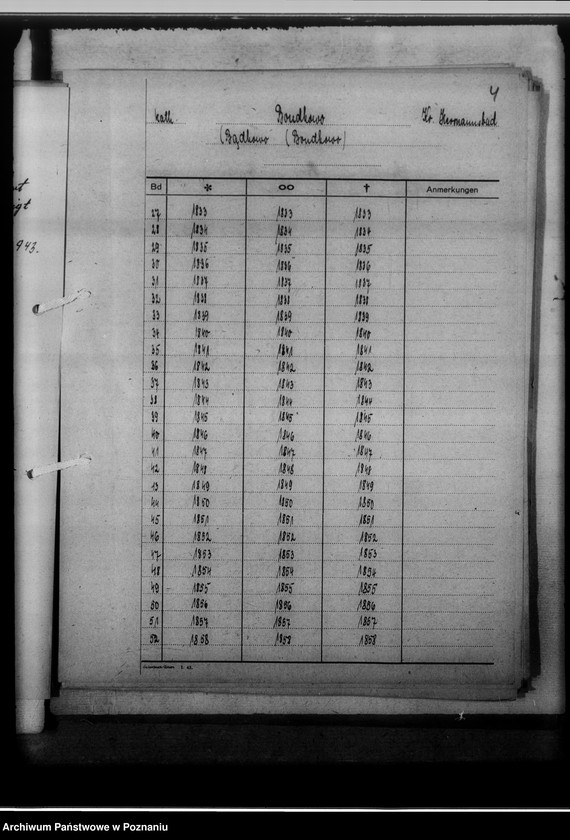 4
kath. Bondkowo Kr. Hermannsbad
(Bądkowo (Bondkowo)
Bd * oo † Anmerkungen
27 1833 1833 1833
28 1834 1834 1834
29 1835 1835 1835
30 1836 1836 1836
31 1837 1837 1837
32 1838 1838 1838
33 1839 1839 1839
34 1840 1840 1840
35 1841 1841 1841
36 1842 1842 1842
37 1843 1843 1843
38 1844 1844 1844
39 1845 1845 1845
40 1846 1846 1846
41 1847 1847 1847
42 1848 1848 1848
43 1849 1849 1849
44 1850 1850 1850
45 1851 1851 1851
46 1852 1852 1852
47 1853 1853 1853
48 1854 1854 1854
49 1855 1855 1855
50 1856 1856 1856
51 1857 1857 1857
52 1858 1858 1858
943.
Archiwum Państwowe w Poznaniu